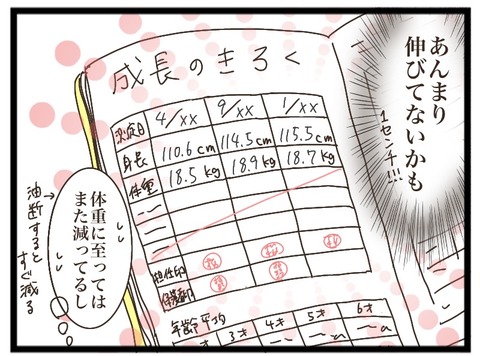 あんまり
伸びてないかも
1センチ!!!
成長のきろく
測定日 4/xx 9/xx 1/xx
身長 110.6cm 114.5cm 115.5cm
体重 18.5kg 18.9kg 18.7kg
担任印
保護者印
年齢平均
3才 4才 5才 6才
体重に至っては
また減ってるし
油断すると
すぐ減る